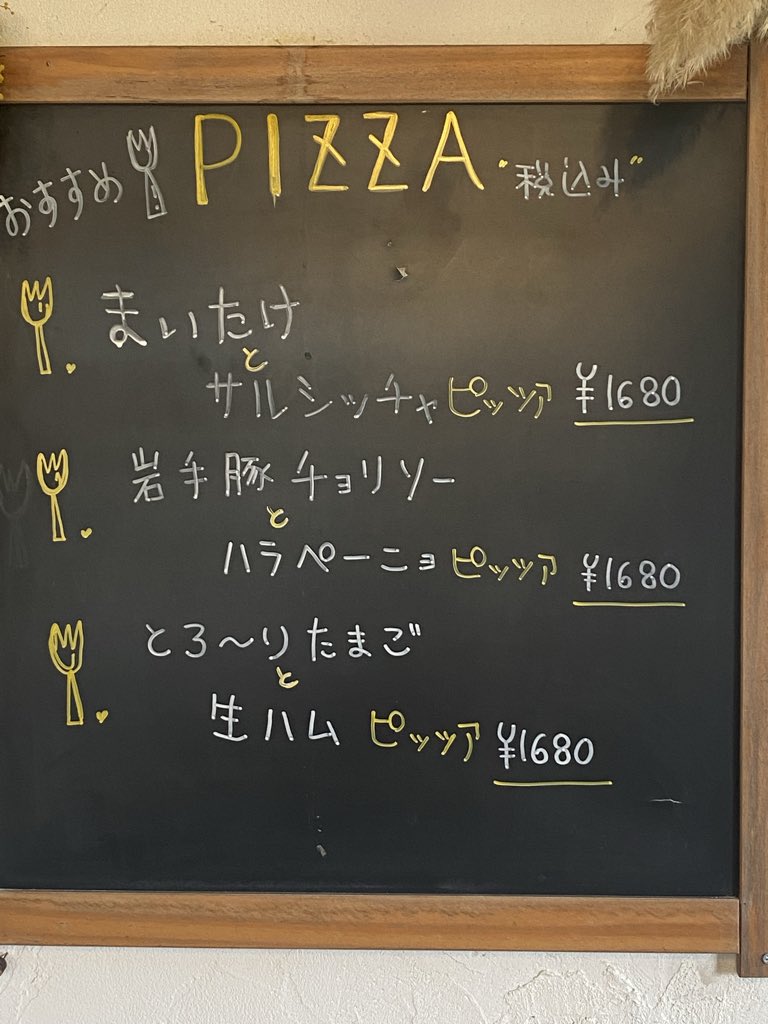 おすすめ PIZZA "税込み"
まいたけ
と
サルシッチャピッツァ ¥1680
岩手豚チョリソー
と
ハラペーニョピッツァ ¥1680
とろ〜りたまご
と
生ハム ピッツァ ¥1680